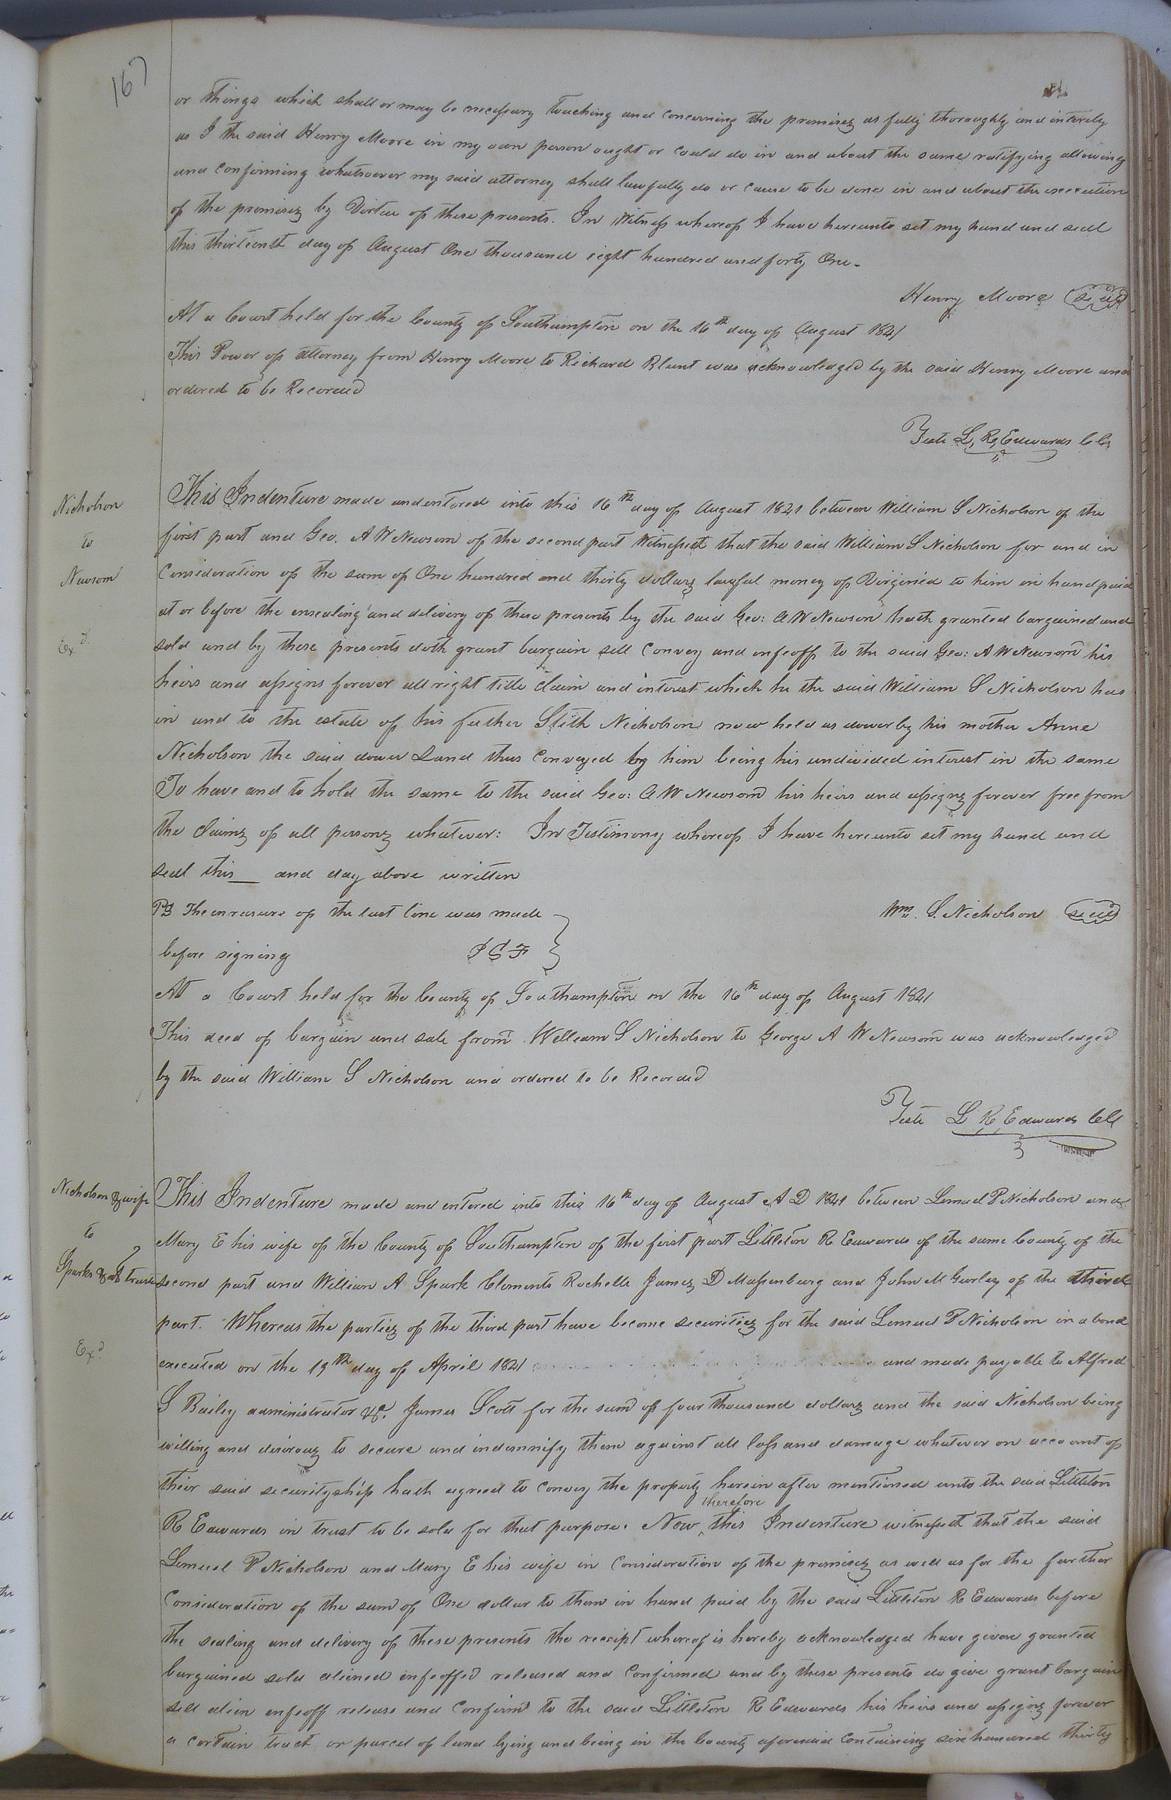 167
or things which shall or may be necessary touching and concerning the premises as fully thoroughly and intirely
as I the said Henry Moore in my own person ought or could do in and about the same ratifying allowing
and confirming whatsoever my said attorney shall lawfully do or cause to be done in and about the execution
of the premises by Virtue of these presents. In Witness whereof I have hereunto set my hand and seal
this thirteenth day of August One thousand eight hundred and forty One.
Henry Moore (seal)
At a Court held for the County of Southampton on the 16th day of August 1841
This Power of attorney from Henry Moore to Richard Blunt was acknowledged by the said Henry Moore and
ordered to be Recorded
Teste L. R. Edwards Clk
Nicholson
to
Newsom
Exd.
This Indenture made and entered into this 16th day of August 1841 between William S Nicholson of the
first part and Geo. A W Newsom of the second part Witnesseth that the said William S Nicholson for and in
Consideration of the sum of One hundred and thirty dollars lawful money of Virginia to him in hand paid
at or before the ensealing and delivery of these presents by the said Geo: A W Newsom hath granted bargained and
sold and by these presents doth grant bargain sell Convey and enfeoff to the said Geo: A W Newsom his
heirs and assigns forever all right title claim and interest which he the said William S Nicholson has
in and to the estate of his father Slith Nicholson now held as dower by his mother Anne
Nicholson the said dower Land thus conveyed by him being his undivided interest in the same
To have and to hold the same to the said Geo: A W Newsom his heirs and assigns forever free from
the claims of all persons whatever: In Testimony whereof I have hereunto set my hand and
seal this__ and day above written
PS The erasure of the last line was made
before signing
Wm. S. Nicholson (seal)
At a Court held for the County of Southampton on the 16th day of August 1841
This deed of bargain and sale from William S Nicholson to George A W Newsom was acknowledged
by the said William S Nicholson and ordered to be Recorded
Teste L R Edwards Clk
Nicholson & wife
to
Sparks
Exd.
This Indenture made and entered into this 16th day of August A D 1841 between Lemuel P Nicholson and
Mary E his wife of the County of Southampton of the first part Littleton R Edwards of the same County of the
second part and William A Spark Clements Rochelle James D Massenburg and John M Gurley of the third
part. Whereas the parties of the third part have become securities for the said Lemuel P Nicholson in a bond
executed on the 19th day of April 1841 and made payable to Alfred
S Bailey administrator &c. James Scott for the sum of four thousand dollars and the said Nicholson being
willing and desirous to secure and indemnify them against all loss and damage whatever on account of
their said securityship hath agreed to convey the property herein after mentioned unto the said Littleton
R Edwards in trust to be sold for that purpose. Now therefore this Indenture witnesseth that the said
Lemuel P Nicholson and Mary E his wife in Consideration of the premises as well as for the further
Consideration of the sum of One dollar to them in hand paid by the said Littleton R Edwards before
the sealing and delivery of these presents the receipt whereof is hereby acknowledged have given granted
bargained sold aliened enfeoffed released and Confirmed and by these presents do give grant bargain
sell alien enfeoff release and Confirm to the said Littleton R Edwards his heirs and assigns forever
a certain tract or parcel of land lying and being in the County aforesaid Containing six hundred thirty